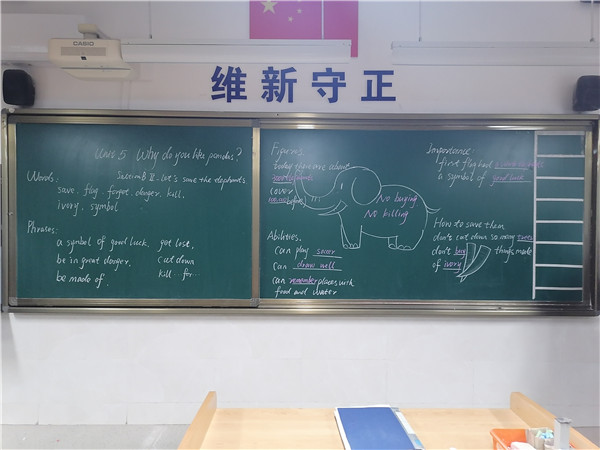 CASIO
维新守正
Unit 5 Why do you like pandas?
Section B II - Let's save the elephants.
Words:
save, flag, forget, danger, kill,
ivory, symbol
Phrases:
a symbol of good luck, get lost,
be in great danger, cut down
be made of, kill...for...
Figures:
today there are about
(over
before)
No buying
No killing
Abilities,
can play soccer
can draw well
can remember places with
food and water
Importance
first flag had
a symbol of good luck
How to save them
don't cut down so many trees
don't buy things made
of ivory